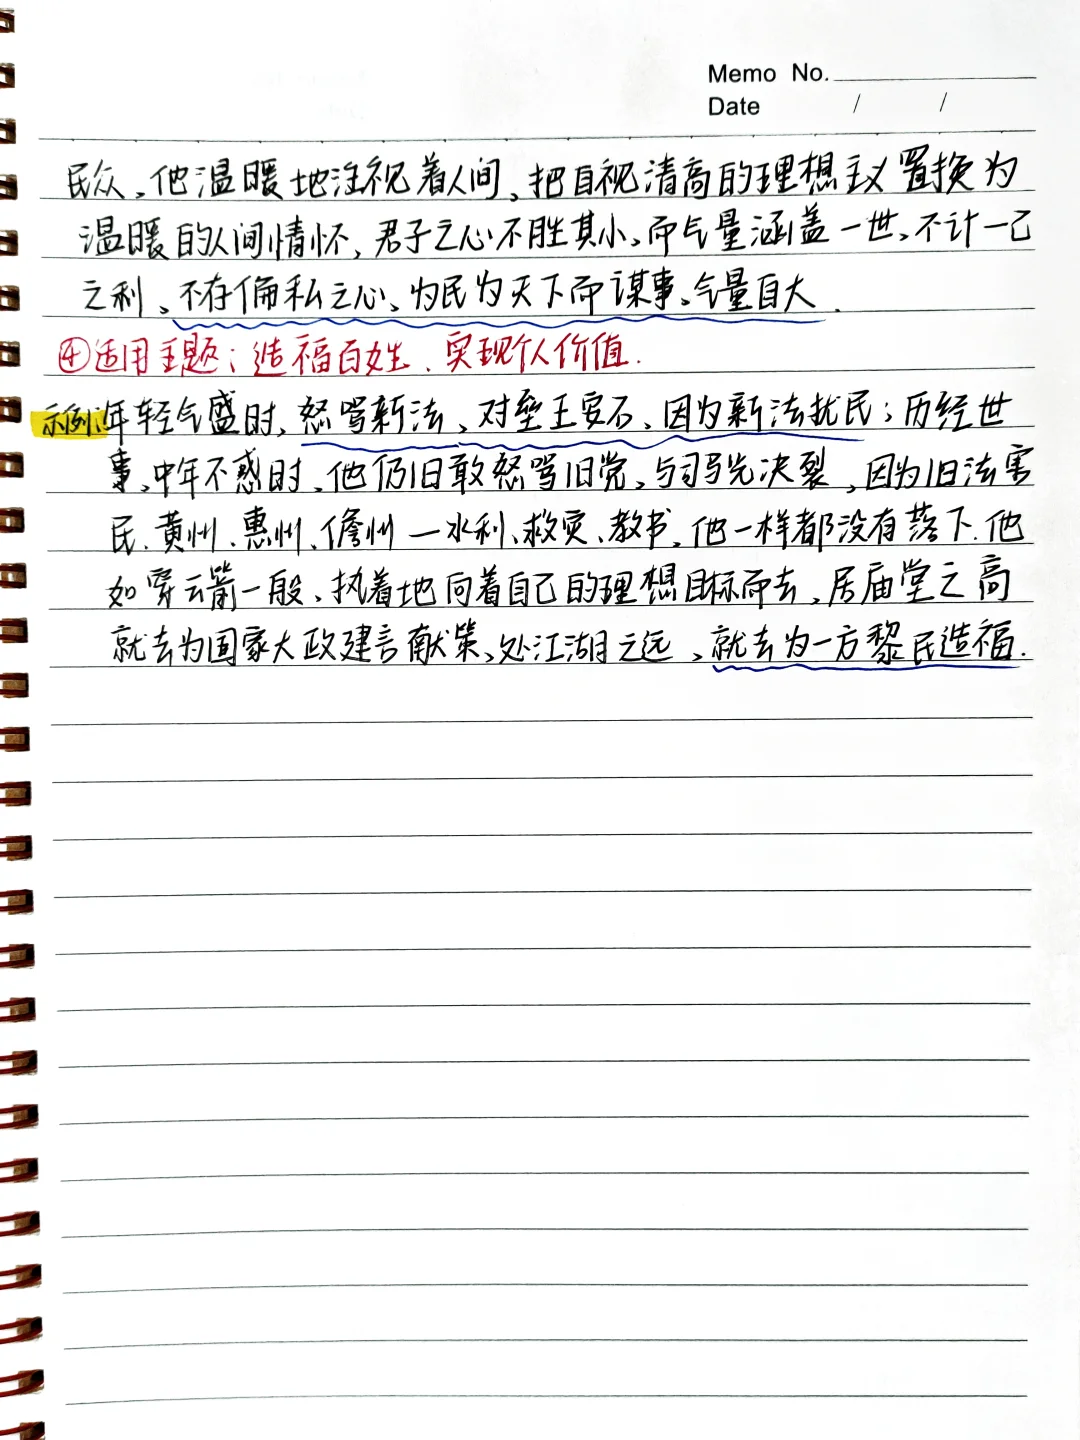 Memo No.
Date / /
民众、他温暖地注视着人间、把自视清高的理想主义置换为
温暖的人间情怀、君子之心不胜其小、而气量涵盖一世、不计一己
之利、不存偏私之心、为民为天下而谋事、气量自大.
④适用主题：造福百姓、实现个人价值.
示例:年轻气盛时、怒骂新法、对垒王安石、因为新法扰民；历经世
事、中年不惑时、他仍旧敢怒骂旧党、与司马光决裂、因为旧法害
民.黄州、惠州、儋州—水利、救灾、教书、他一样都没有落下.他
如穿云箭一般、执着地向着自己的理想目标而去、居庙堂之高
就去为国家大政建言献策、处江湖之远、就去为一方黎民造福.